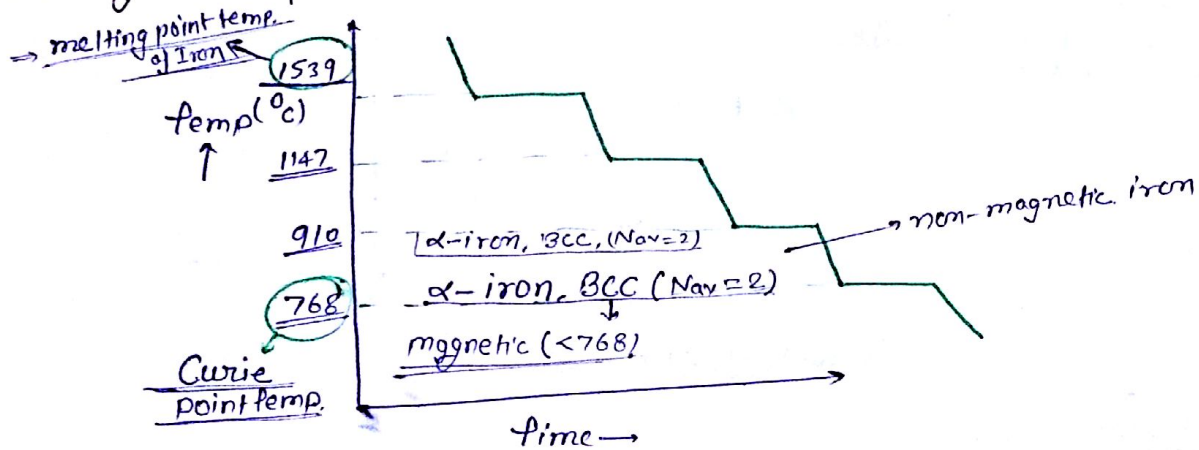 ⇒ melting point temp.
of Iron
1539
temp(°c)
↑
1147
910
α-iron, BCC, (Nav=2)
→ non-magnetic iron
768
α-iron, BCC (Nav=2)
magnetic (<768)
Curie
point temp.
time →